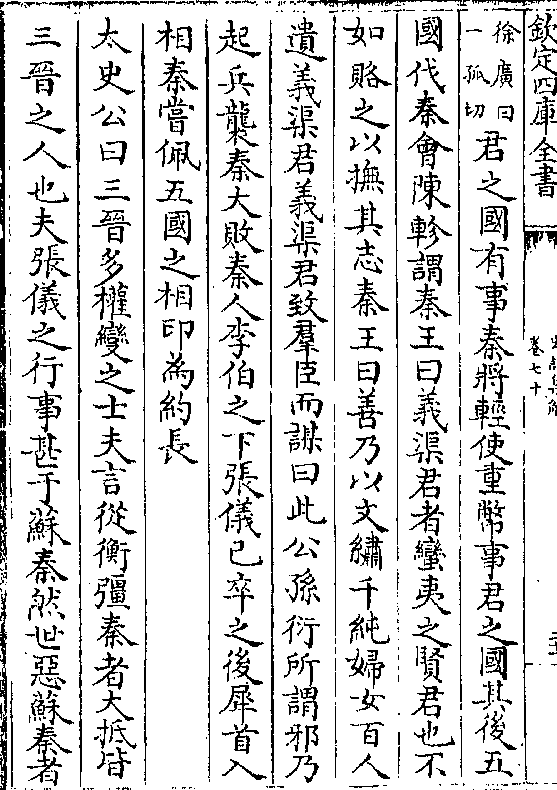 欽定四庫全書
史記集解
卷七十
徐廣曰
一孤切
君之國有事秦將輕使重幣事君之國其後五
國伐秦會陳軫謂秦王曰義渠君者蠻夷之賢君也不
如賂之以撫其志秦王曰善乃以文繡千純婦女百人
遺義渠君義渠君致羣臣而謀曰此公孫衍所謂邪乃
起兵襲秦大敗秦人李伯之下張儀已卒之後犀首入
相秦嘗佩五國之相印為約長
太史公曰三晉多權變之士夫言從衡彊秦者大抵皆
三晉之人也夫張儀之行事甚于蘇秦然世惡蘇秦者